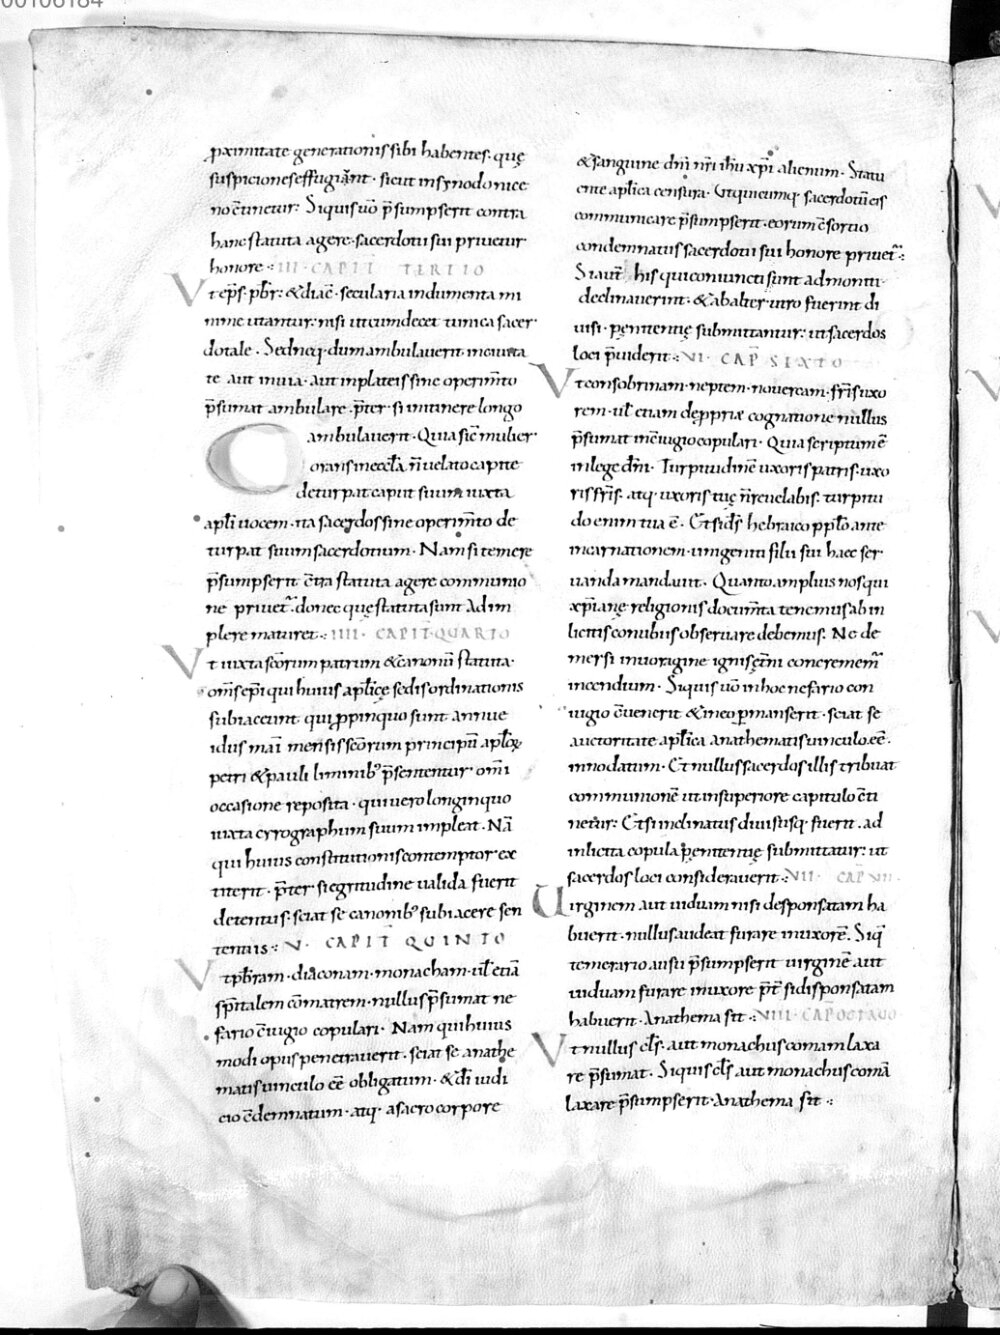 00106184
ꝓximitate generationis sibi habentes· quę
suspiciones effugiant· sicut in synodo nicę
no c̄tinetur· Siquis uō p̄sumpserit contra
hanc statuta agere· sacerdotii sui priuetur
honore· III· CAPIT TERTIO
Vt ep̄s· pb̄r· & diac̄· secularia indumenta mi
nime utantur· nisi ut cum decet tunica sacer
dotale· Sed neq· dum ambulauerit in ciuita
te aut in uia· aut in plateis sine operim̄to
p̄sumat ambulare· p̄ter· si in itinere longo
ambulauerit· Quia sic̄ mulier
orans in eccl̄a n̄ uelato capite
deturpat caput suum iuxta
apl̄i uocem· ita sacerdos sine operim̄to de
turpat suum sacerdotium· Nam si temere
p̄sumpserit c̄tra statuta agere communio
ne priuet̄· donec quę statuta sunt adim
plere maturet· IIII· CAPIT QUARTO
Vt iuxta sc̄orum patrum & canonū statuta·
om̄s ep̄i qui huius apl̄icę sedis ordinationis
subiaceunt qui ꝓpinquo sunt anniue
idus mai mensis sc̄orum principū aplōꝝ
petri & pauli liminib; p̄sententur· om̄i
occasione reposita· qui uero longinquo
iuxta cyrographum suum impleat· Nā
qui huius constitutionis contemptor ex
titerit· p̄ter si egritudine ualida fuerit
detentus· sciat se canonib; subiacere sen
tentiis· V· CAPIT QUINTO
Vt pb̄ram· diaconam· monacham· ul̄ etiā
sp̄italem cōmatrem· nullus p̄sumat ne
fario c̄iugio copulari· Nam qui huius
modi opus penetrauerit· sciat se anathe
matis uinculo eē obligatum· & dī iudi
cio c̄demnatum· atq· a sacro corpore
& sanguine dn̄i nr̄i ihū xp̄i alienum· Statu
ente apl̄ica censura· Ut quicumq· sacerdotū eis
communicare p̄sumpserit· eorum c̄sortio
condemnatus sacerdotii sui honore priuet̄·
Si aut̄ his qui coniuncti sunt admoniti·
declinauerint· & ab alter utro fuerint di
uisi· penitentię submittantur· ut sacerdos
loci p̄uiderit· VI· CAP SIXTO
Vt consobrinam· neptem· nouercam· fr̄is uxo
rem· ul̄ etiam de ꝓpria cognatione nullus
p̄sumat in c̄iugio copulari· Quia scriptum ē
in lege dn̄i· Turpitudinē uxoris patris· uxo
ris fr̄is· atq· uxoris tuę n̄ reuelabis· turpitu
do enim tua ē· Et si d̄s hebraico ppl̄o ante
incarnationem· unigeniti filii sui haec ser
uanda mandauit· Quanto amplius nos qui
xp̄ianę religionis docum̄ta tenemus ab in
licitis conibus obseruare debemus· Ne de
mersi in uorigine ignis et̄ni concrememr̄
incendium· Siquis uō in hoc nefario con
iugio c̄uenerit & in eo ꝑmanserit· sciat se
auctoritate apl̄ica anathematis uinculo eē·
innodatum· Et nullus sacerdos illis tribuat
communionē ut in superiore capitulo c̄ti
netur· Et si inclinatus diuisusq· fuerit· ad
inlicita copula penitentię submittatur· ut
sacerdos loci considerauerit· VII· CAP VII·
Uirginem aut uiduam nisi desponsatam ha
buerit· nullus audeat furare in uxorē· Siq̄
temerario ausu p̄sumpserit uirginē aut
uiduam furare in uxore p̄t si disponsatam
habuerit· Anathema sit· VIII· CAP OCTAUO
Vt nullus cl̄s· aut monachus comam laxa
re p̄sumat· Siquis cl̄s aut monachus comā
laxare p̄sumpserit· Anathema sit·